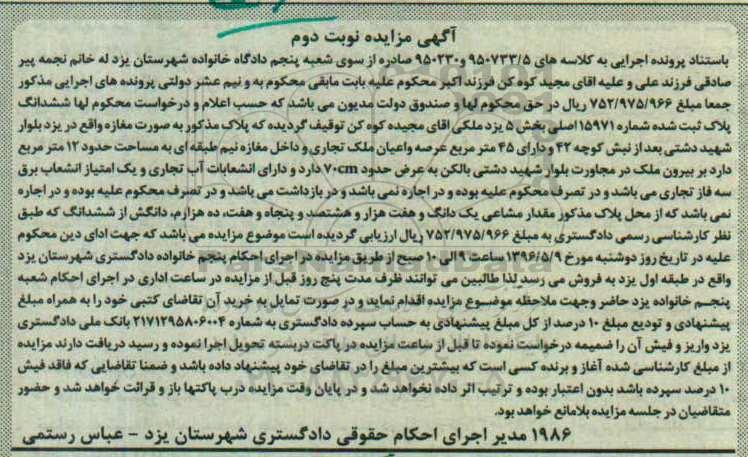 آگهی مزایده نوبت دوم
باستناد پرونده اجرایی به کلاسه های ۹۵۰۷۳۳/۵ و۹۵۰۲۳۰ صادره از سوی شعبه پنجم دادگاه خانواده شهرستان یزد له خانم نجمه پیر
صادقی فرزند علی و علیه اقای مجید کوه کن فرزند اکبر محکوم علیه بابت مابقی محکوم به و نیم عشر دولتی پرونده های اجرایی مذکور
جمعا مبلغ ۷۵۲/۹۷۵/۹۶۶ ریال در حق محکوم لها و صندوق دولت مدیون می باشد که حسب اعلام و درخواست محکوم لها ششدانگ
پلاک ثبت شده شماره ۱۵۹۷۱ اصلی بخش ۵ یزد ملکی اقای مجیده کوه کن توقیف گردیده که پلاک مذکور به صورت مغازه واقع در یزد بلوار
شهید دشتی بعد از نبش کوچه ۴۲ و دارای ۴۵ متر مربع عرصه واعیان ملک تجاری و داخل مغازه نیم طبقه ای به مساحت حدود ۱۲ متر مربع
دارد بر بیرون ملک در مجاورت بلوار شهید دشتی بالکن به عرض حدود ۷۰cm دارد و دارای انشعابات آب تجاری و یک امتیاز انشعاب برق
سه فاز تجاری می باشد و در تصرف محکوم علیه بوده و در اجاره نمی باشد و در بازداشت می باشد و در تصرف محکوم علیه بوده و در اجاره
نمی باشد که از محل پلاک مذکور مقدار مشاعی یک دانگ و هفت هزار و هشتصد و پنجاه و هفت، ده هزارم، دانگش از ششدانگ که طبق
نظر کارشناسی رسمی دادگستری به مبلغ ۷۵۲/۹۷۵/۹۶۶ ریال ارزیابی گردیده است موضوع مزایده می باشد که جهت ادای دین محکوم
علیه در تاریخ روز دوشنبه مورخ ۱۳۹۶/۵/۹ ساعت ۹ الی ۱۰ صبح از طریق مزایده در اجرای احکام پنجم خانواده دادگستری شهرستان یزد
واقع در طبقه اول یزد به فروش می رسد لذا طالبین می توانند ظرف مدت پنج روز قبل از مزایده در ساعت اداری در اجرای احکام شعبه
پنجم خانواده یزد حاضر وجهت ملاحظه موضوع مزایده اقدام نماید و در صورت تمایل به خرید آن تقاضای کتبی خود را به همراه مبلغ
پیشنهادی و تودیع مبلغ ۱۰ درصد از کل مبلغ پیشنهادی به حساب سپرده دادگستری به شماره ۲۱۷۱۲۹۵۸۰۶۰۰۴ بانک ملی دادگستری
یزد واریز و فیش آن را ضمیمه درخواست نموده تا قبل از ساعت مزایده در پاکت دربسته تحویل اجرا نموده و رسید دریافت دارند مزایده
از مبلغ کارشناسی شده آغاز و برنده کسی است که بیشترین مبلغ را در تقاضای خود پیشنهاد داده باشد و ضمنا تقاضایی که فاقد فیش
۱۰ درصد سپرده باشد بدون اعتبار بوده و ترتیب اثر داده نخواهد شد و در پایان وقت مزایده درب پاکتها باز و قرائت خواهد شد و حضور
متقاضیان در جلسه مزایده بلامانع خواهد بود.
۱۹۸۶ مدیر اجرای احکام حقوقی دادگستری شهرستان یزد - عباس رستمی